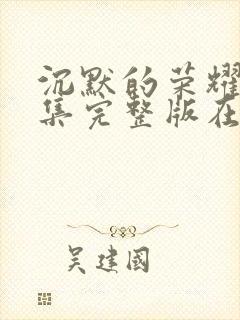 沉默的荣耀
集完整版在
吴建國